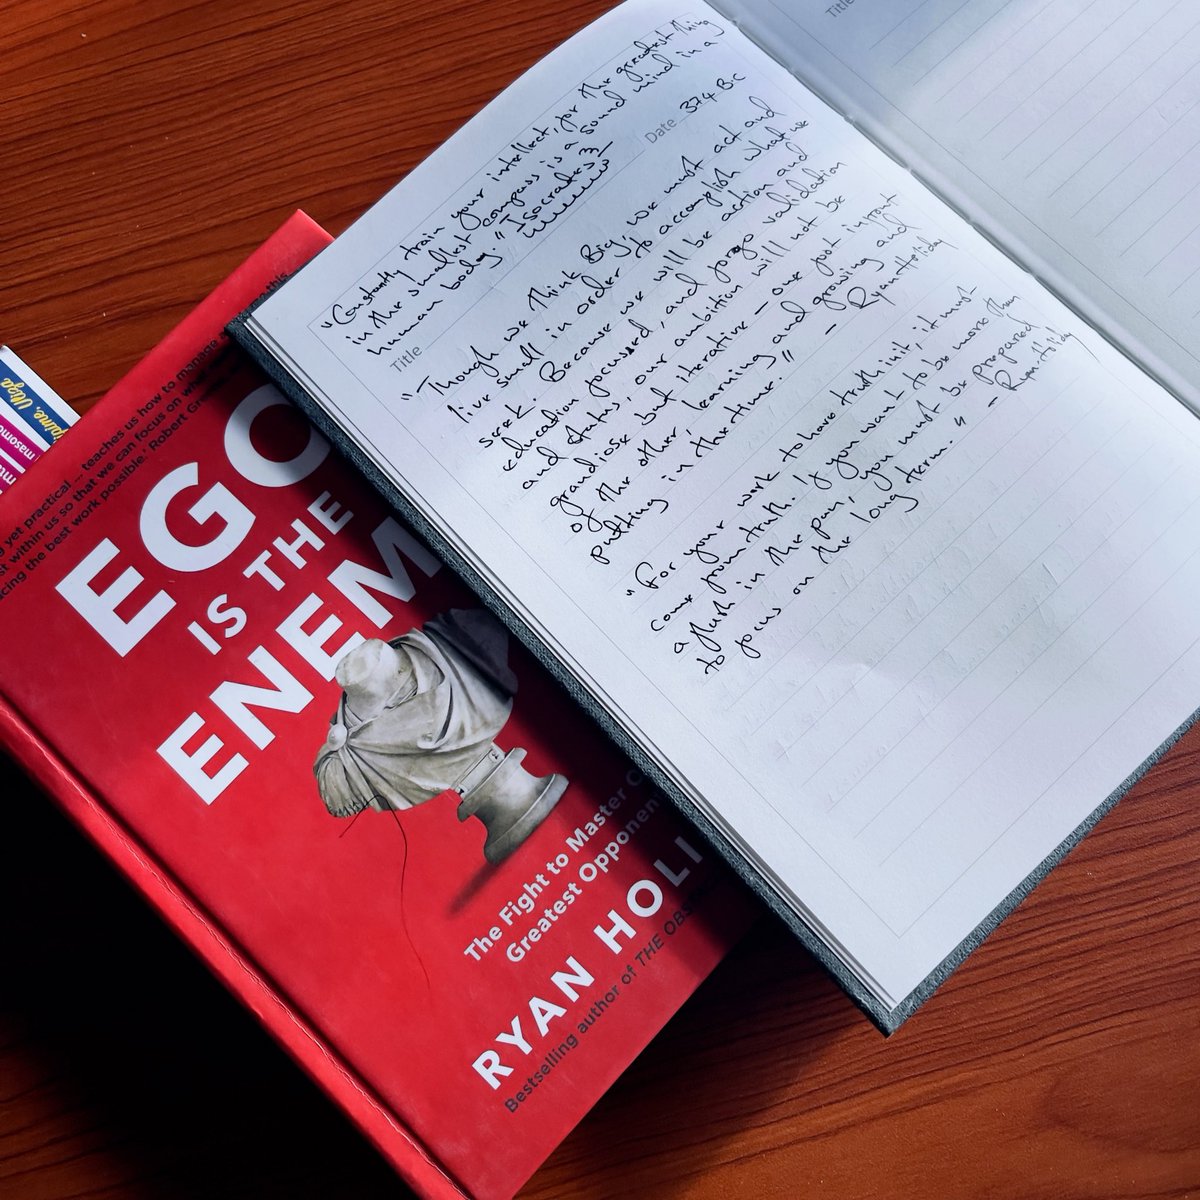 "Constantly train your intellect, for the greatest thing
in the smallest compass is a sound mind in a
human body." - Isocrates
Title
Date 374 BC
"Though we think Big, we must act and
live small in order to accomplish what we
seek. Because we will be action and
education focussed, and forgo validation
and status, our ambition will not be
grandiose but iterative - one foot infront
of the other, learning and growing and
putting in the time." - Ryan Holiday
"For your work to have truth in it, it must
come from truth. If you want to be more than
a flash in the pan, you must be prepared
to focus on the long term." - Ryan Holiday
Title
yet practical ... teaches us how to manage
within us so that we can focus on
cing the best work possible.' Robert Gre
EGO
IS THE
ENEM
The Fight to Master
Greatest Opponen
RYAN HOLI
Bestselling author of THE OBS
pime, Ulga
masomo